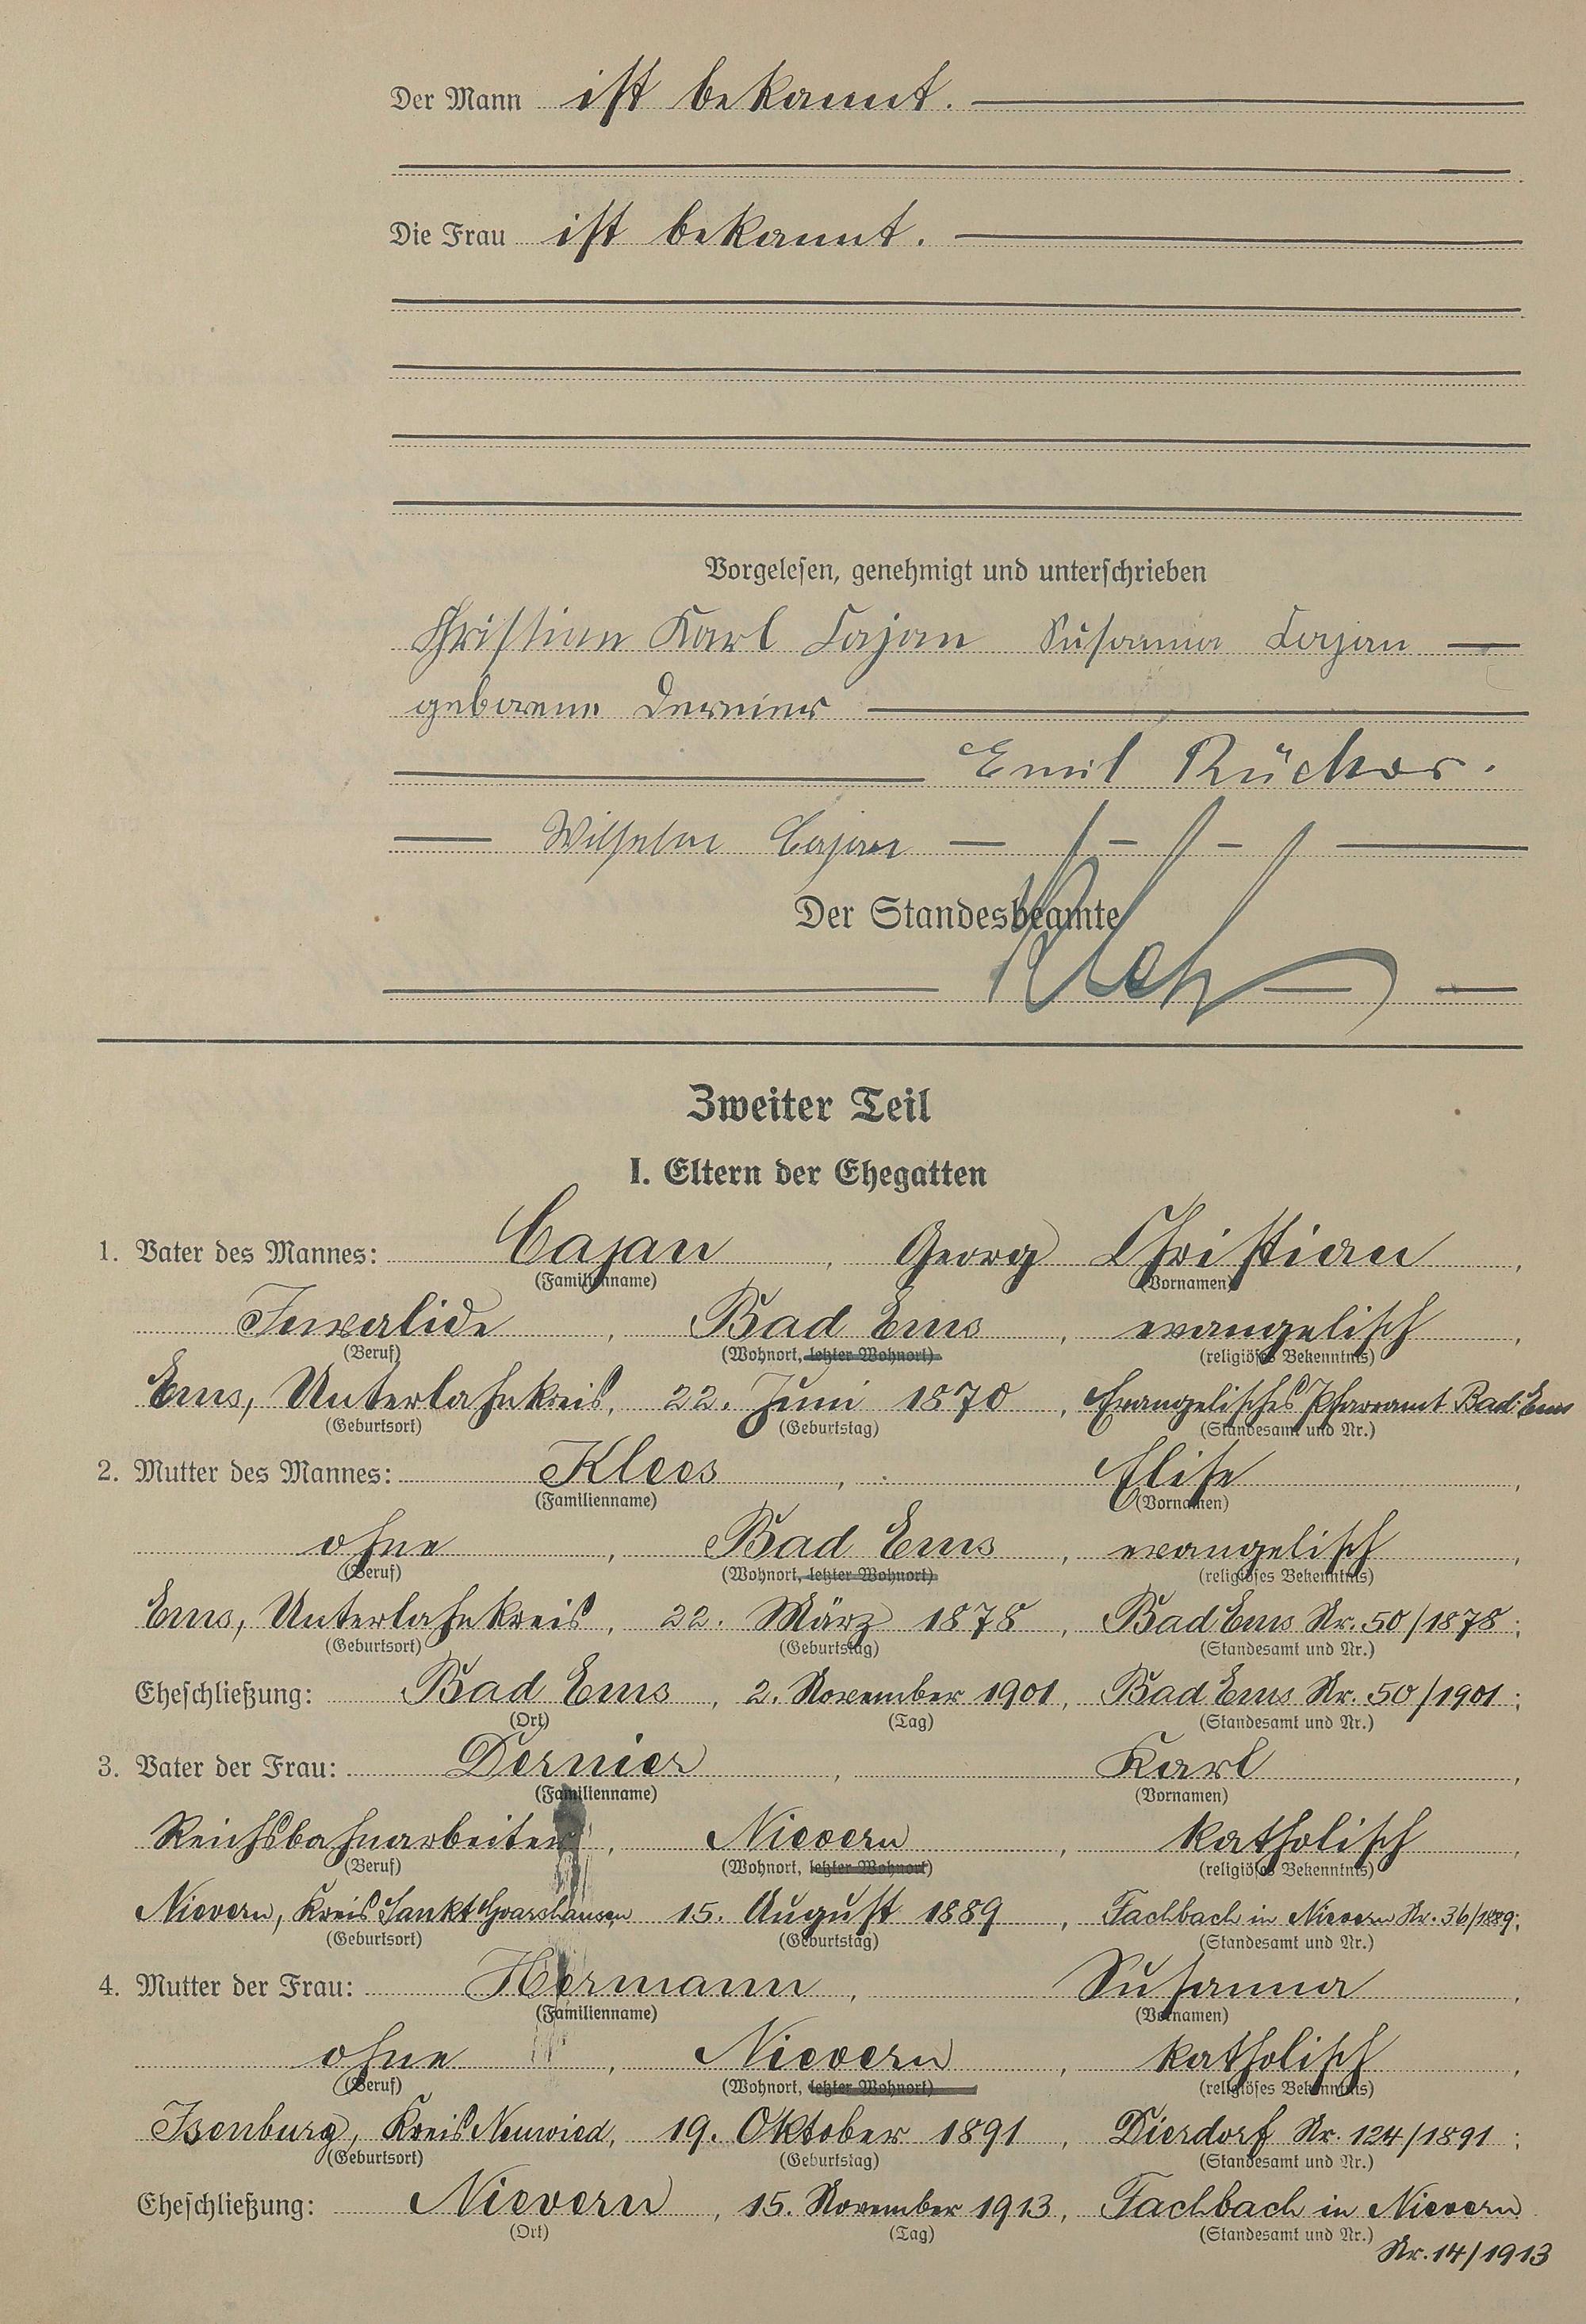 Der Mann ist bekannt.
Die Frau ist bekannt.
Vorgelesen, genehmigt und unterschrieben
Christian Karl Cajan Susanna Cajan
geborene Dernier
Emil Rücker.
Wilhelm Cajan
Der Standesbeamte
Zweiter Teil
I. Eltern der Ehegatten
1. Vater des Mannes: Cajan, Georg Christian,
(Familienname) (Vornamen)
Invalide, Bad Ems, evangelisch,
(Beruf) (Wohnort, letzter Wohnort) (religiöses Bekenntnis)
Ems, Unterlahnkreis, 22. Juni 1870, Evangelisches Pfarramt Bad Ems
(Geburtsort) (Geburtstag) (Standesamt und Nr.)
2. Mutter des Mannes: Klees, Elise,
(Familienname) (Vornamen)
ohne, Bad Ems, evangelisch,
(Beruf) (Wohnort, letzter Wohnort) (religiöses Bekenntnis)
Ems, Unterlahnkreis, 22. März 1878, Bad Ems Nr. 50/1878;
(Geburtsort) (Geburtstag) (Standesamt und Nr.)
Eheschließung: Bad Ems, 2. November 1901, Bad Ems Nr. 50/1901;
(Ort) (Tag) (Standesamt und Nr.)
3. Vater der Frau: Dernier, Karl,
(Familienname) (Vornamen)
Reichsbahnarbeiter, Nievern, katholisch,
(Beruf) (Wohnort, letzter Wohnort) (religiöses Bekenntnis)
Nievern, Kreis Sankt Goarshausen 15. August 1889, Fachbach in Nievern Nr. 36/1889;
(Geburtsort) (Geburtstag) (Standesamt und Nr.)
4. Mutter der Frau: Hermann, Susanna,
(Familienname) (Vornamen)
ohne, Nievern, katholisch,
(Beruf) (Wohnort, letzter Wohnort) (religiöses Bekenntnis)
Isenburg, Kreis Neuwied, 19. Oktober 1891, Dierdorf Nr. 124/1891;
(Geburtsort) (Geburtstag) (Standesamt und Nr.)
Eheschließung: Nievern, 15. November 1913, Fachbach in Nievern
(Ort) (Tag) (Standesamt und Nr.)
Nr. 14/1913